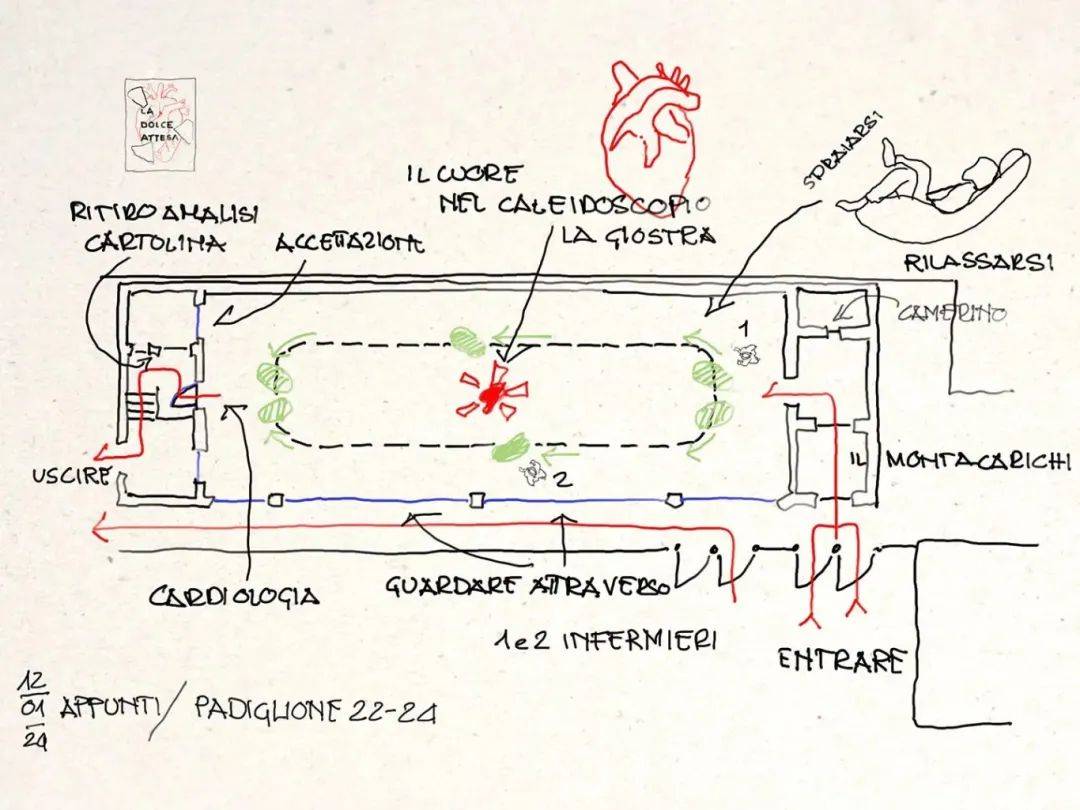 LA
DOLCE
ATTESA
IL CUORE
NEL CALEIDOSCOPIO
LA GIOSTRA
SDRAIARSI
RITIRO ANALISI
CARTOLINA
ACCETTAZIONE
RILASSARSI
CAMERINO
1
USCIRE
IL MONTACARICHI
2
CARDIOLOGIA
GUARDARE ATTRAVERSO
1 e 2 INFERMIERI
ENTRARE
12
01
24
APPUNTI / PADIGLIONE 22-24